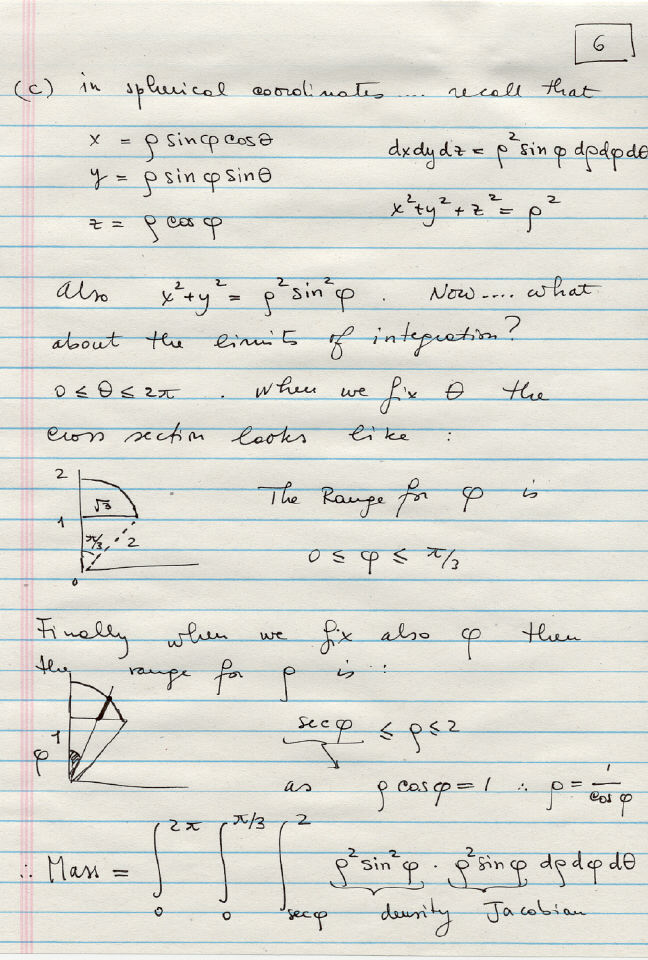 6
(c) in spherical coordinates .... recall that
x = ρ sinφ cosθ
dxdydz = ρ² sin φ dρdφdθ
y = ρ sin φ sinθ
x²+y²+z² = ρ²
z = ρ cos φ
Also x²+y² = ρ² sin² φ . Now .... what
about the limits of integration?
0 ≤ θ ≤ 2π . When we fix θ the
cross section looks like :
2
√3
The Range for φ is
1
π/3
2
0 ≤ φ ≤ π/3
0
Finally when we fix also φ then
the range for ρ is :
sec φ ≤ ρ ≤ 2
1
φ
as ρ cos φ = 1 ∴ ρ = 1/cos φ
∴ Mass = ∫₀^{2π} ∫₀^{π/3} ∫_{secφ}^{2} ρ² sin² φ · ρ² sin φ dρ dφ dθ
density Jacobian